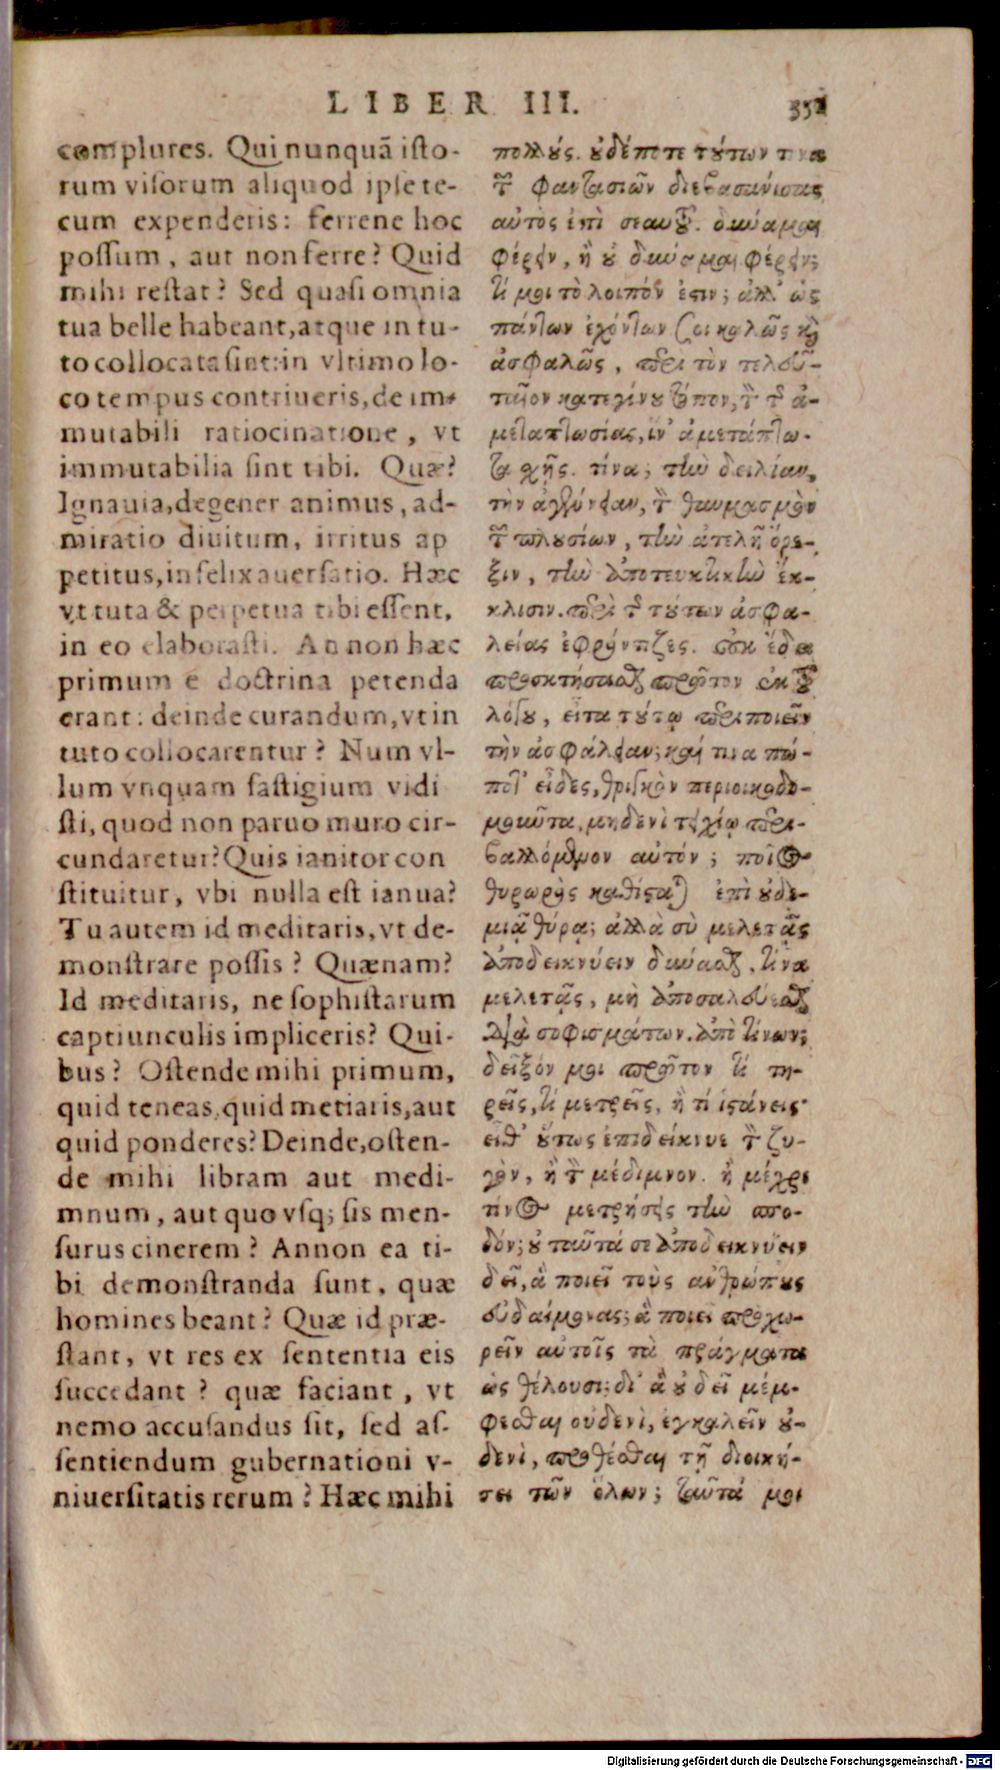 LIBER III.
complures. Qui nunquã isto-
rum visorum aliquod ipse te-
cum expenderis: ferrene hoc
possum, aut non ferre? Quid
mihi restat? Sed quasi omnia
tua belle habeant, atque in tu-
to collocata sint: in vltimo lo-
co tempus contriueris, de im-
mutabili ratiocinatione, vt
immutabilia sint tibi. Quæ?
Ignauia, degener animus, ad-
miratio diuitum, irritus ap
petitus, infelix auersatio. Hæc
vt tuta & perpetua tibi essent,
in eo elaborasti. An non hæc
primum e doctrina petenda
erant: deinde curandum, vt in
tuto collocarentur? Num vl-
lum vnquam fastigium vidi
sti, quod non paruo muro cir-
cundaretur? Quis ianitor con
stituitur, vbi nulla est ianua?
Tu autem id meditaris, vt de-
monstrare possis? Quænam?
Id meditaris, ne sophistarum
captiunculis impliceris? Qui-
bus? Ostende mihi primum,
quid teneas, quid metiaris, aut
quid ponderes? Deinde, osten-
de mihi libram aut medi-
mnum, aut quo vsq; sis men-
surus cinerem? Annon ea ti-
bi demonstranda sunt, quæ
homines beant? Quæ id præ-
stant, vt res ex sententia eis
succedant? quæ faciant, vt
nemo accusandus sit, sed as-
sentiendum gubernationi v-
niuersitatis rerum? Hæc mihi
πολλούς. οὐδέποτε τούτων τινα
τῶν φαντασιῶν διεβασάνισας
αὐτὸς ἐπὶ σεαυτοῦ. δύναμαι
φέρειν, ἢ οὐ δύναμαι φέρειν;
τί μοι τὸ λοιπόν ἐστιν; ἀλλ' ὡς
πάντων ἐχόντων σοι καλῶς καὶ
ἀσφαλῶς, περὶ τὸν τελευ-
ταῖον κατεγίνου τόπον, τὸν τῆς ἀ-
μεταπτωσίας, ἵν' ἀμετάπτω-
τα σχῇς. τίνα; τὴν δειλίαν,
τὴν ἀγένειαν, τὸν θαυμασμὸν
τῶν πλουσίων, τὴν ἀτελῆ ὄρε-
ξιν, τὴν ἀποτευκτικὴν ἔκ-
κλισιν. περὶ τῆς τούτων ἀσφα-
λείας ἐφρόντιζες. οὐκ ἔδει
προσκτήσασθαι πρῶτον ἐκ τοῦ
λόγου, εἶτα τούτῳ περιποιεῖν
τὴν ἀσφάλειαν; καὶ τινα πώ-
ποτ' εἶδες, θριγκὸν περιοικοδο-
μοῦντα, μηδενὶ τειχίῳ περι-
βαλλόμενον αὐτόν; ποῖος
θυρωρὸς καθίσταται ἐπὶ οὐδε-
μιᾷ θύρᾳ; ἀλλὰ σὺ μελετᾷς
ἀποδεικνύειν δύνασθαι, τίνα
μελετᾷς, μὴ ἀποσαλεύεσθαι
διὰ σοφισμάτων. ἀπὸ τίνων;
δεῖξόν μοι πρῶτον τί τη-
ρεῖς, τί μετρεῖς, ἢ τί ἱστάνεις·
εἶθ' οὕτως ἐπιδείκνυε τὸν ζυ-
γὸν, ἢ τὸν μέδιμνον. ἢ μέχρι
τίνος μετρήσεις τὴν σπο-
δόν; οὐ ταῦτά σε ἀποδεικνύειν
δεῖ, ἃ ποιεῖ τοὺς ἀνθρώπους
εὐδαίμονας; ἃ ποιεῖ προχω-
ρεῖν αὐτοῖς τὰ πράγματα
ὡς θέλουσι; δι' ἃ οὐ δεῖ μέμ-
φεσθαι οὐδενὶ, ἐγκαλεῖν οὐ-
δενὶ, προθέσθαι τῇ διοικη-
σει τῶν ὅλων; ταῦτά μοι
Digitalisierung gefördert durch die Deutsche Forschungsgemeinschaft - DFG